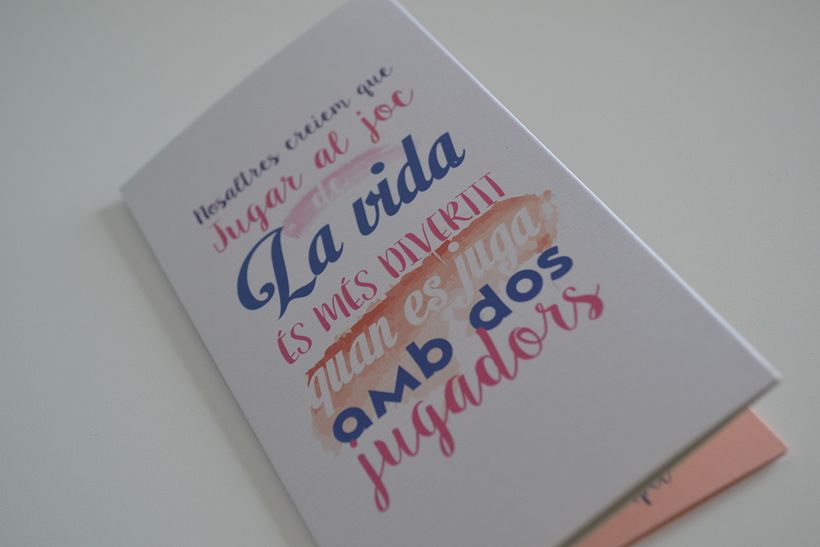 Nosaltres creiem que
Jugar al joc
de
La vida
ÉS MÉS DIVERTIT
quan es juga
amb dos
jugadors